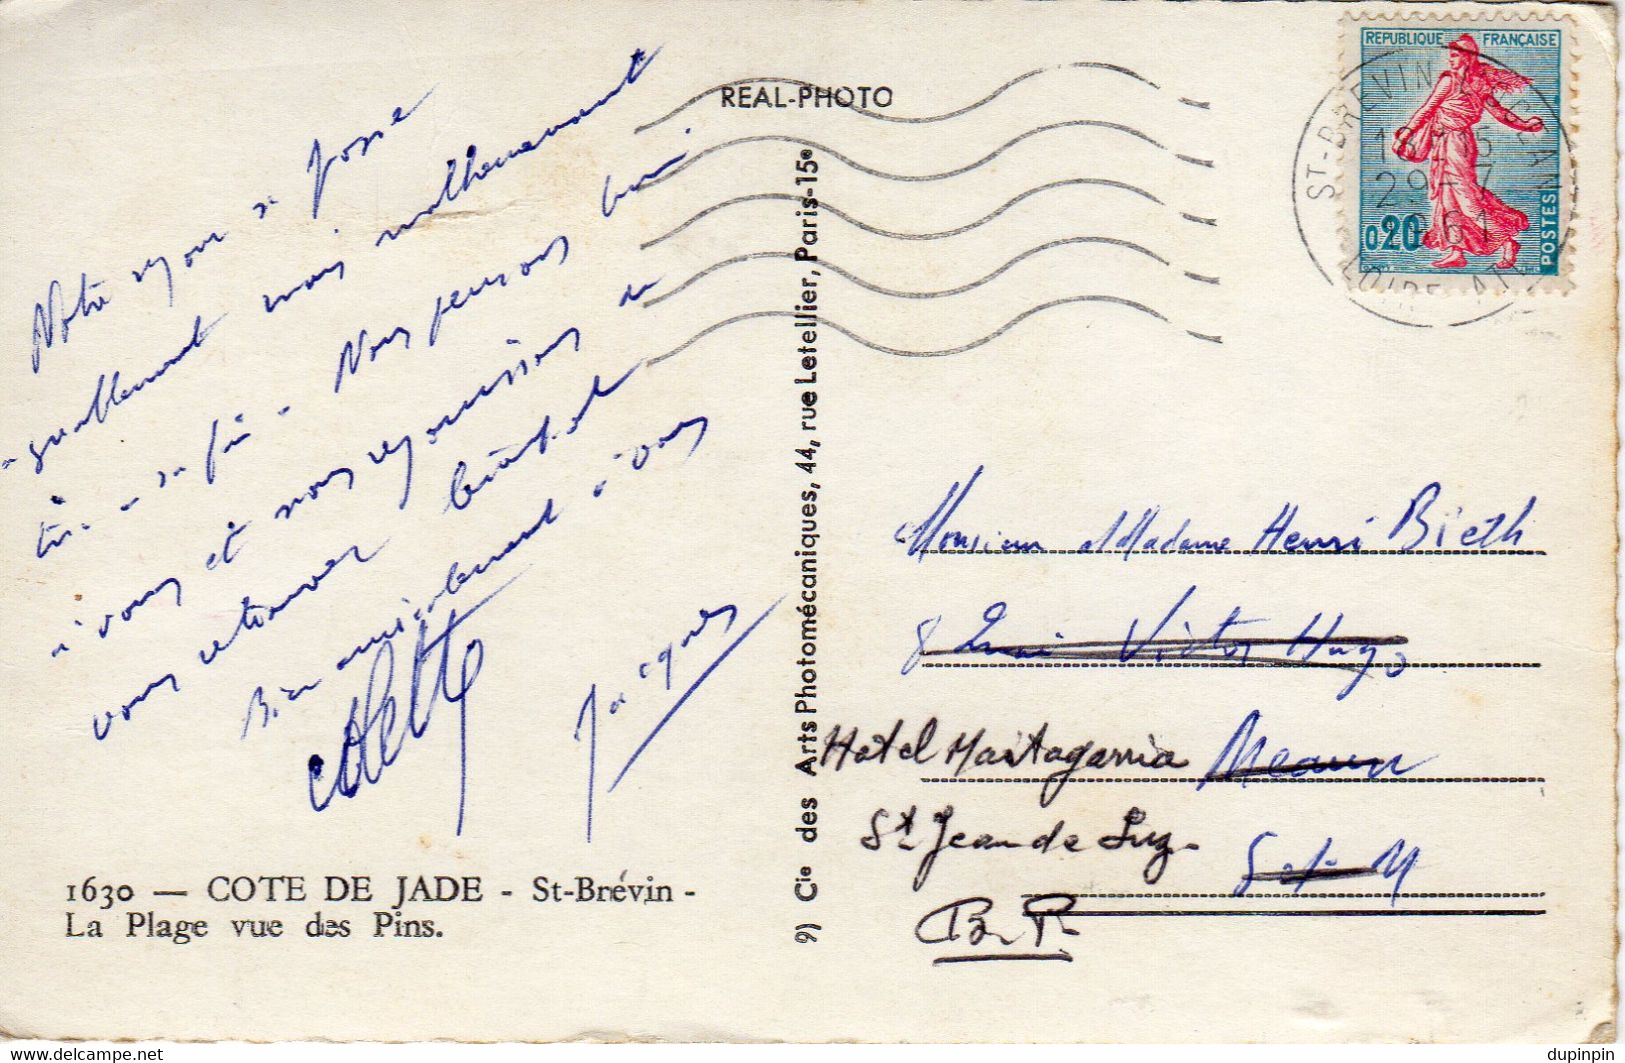 Notre séjour se passe
agréablement mais malheureusement
tire à sa fin. Nous pensons bien
à vous et nous réjouissons de
vous retrouver bientôt
Bien amicalement à vous
Colette Jacques
1630 — COTE DE JADE - St-Brévin -
La Plage vue des Pins.
REAL-PHOTO
9) Cie des Arts Photomécaniques, 44, rue Letellier, Paris-15e
REPUBLIQUE FRANÇAISE
0,20
POSTES
ST-BREVIN L'OCEAN
18H15
29-7
1961
LOIRE-ATL
Monsieur et Madame Henri Bieth
8 Quai Victor Hugo
Hotel Maitagarria
St Jean de Luz
S-et-M
B.P.
https://www.delcampe.net
dupinpin